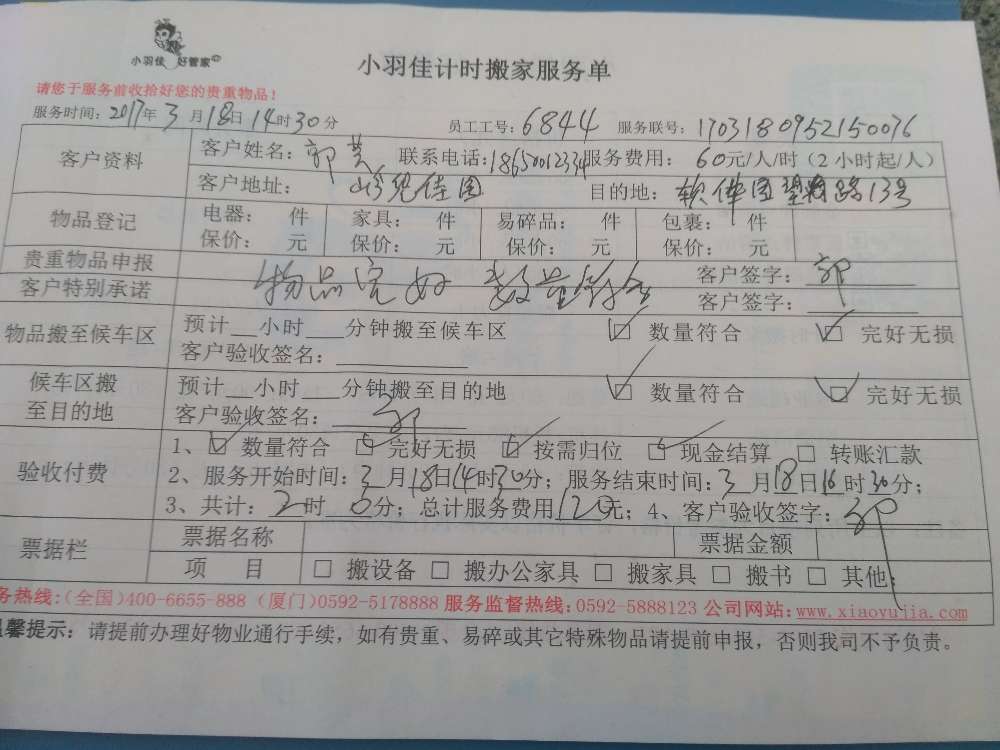 小羽佳 好管家
小羽佳计时搬家服务单
请您于服务前收拾好您的贵重物品！
服务时间：2017年3月18日14时30分 员工工号：6844 服务联号：1703180952150076
客户资料 客户姓名：郭 联系电话：18650012334 服务费用：60元/人/时（2小时起/人）
客户地址： 佳园 目的地：软件园望海路13号
物品登记 电器： 件 家具： 件 易碎品： 件 包裹： 件
保价： 元 保价： 元 保价： 元 保价： 元
贵重物品申报 物品完好 数量符合 客户签字：郭
客户特别承诺 客户签字：
物品搬至候车区 预计__小时___分钟搬至候车区 ☑ 数量符合 ☑ 完好无损
客户验收签名：
候车区搬至目的地 预计__小时___分钟搬至目的地 ☑ 数量符合 ☑ 完好无损
客户验收签名：郭
验收付费 1、☑ 数量符合 ☑ 完好无损 ☑ 按需归位 ☑ 现金结算 □ 转账汇款
2、服务开始时间：3月18日14时30分；服务结束时间：3月18日16时30分；
3、共计：2时0分；总计服务费用120元；4、客户验收签字：郭
票据栏 票据名称 票据金额
项 目 □ 搬设备 □ 搬办公家具 □ 搬家具 □ 搬书 □ 其他：
务热线：（全国）400-6655-888（厦门）0592-5178888 服务监督热线：0592-5888123 公司网站：www.xiaoyujia.com
温馨提示：请提前办理好物业通行手续，如有贵重、易碎或其它特殊物品请提前申报，否则我司不予负责。